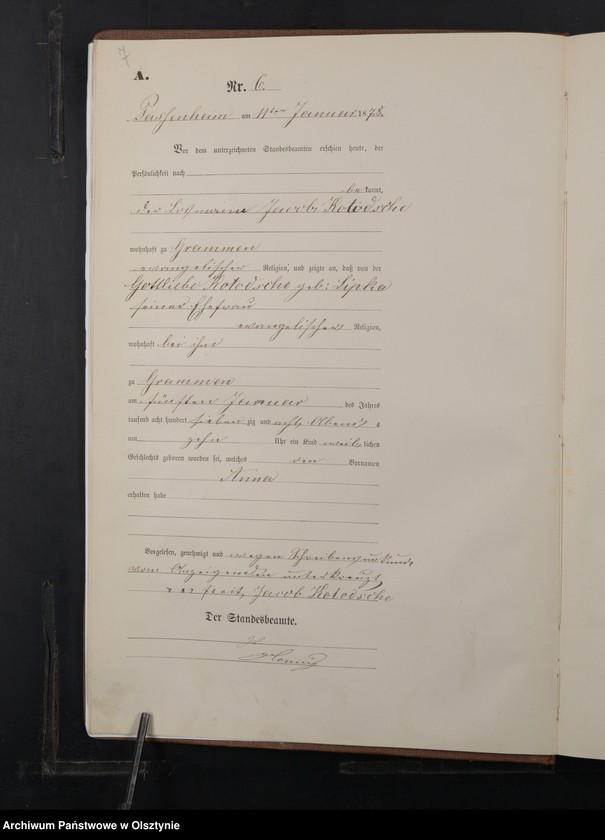 7
A.
Nr. 6.
Passenheim am 11ten Januar 1878.
Vor dem unterzeichneten Standesbeamten erschien heute, der
Persönlichkeit nach
be kannt,
der Losmann Jacob Kotodsche
wohnhaft zu Grammen
evangelischer Religion, und zeigte an, daß von der
Gottliebe Kotodsche geb: Lipka
seiner Ehefrau
evangelischer Religion,
wohnhaft bei ihm
zu Grammen
am fünften Januar des Jahres
tausend acht hundert sieben zig und acht Abends
um zehn Uhr ein Kind weib lichen
Geschlechts geboren worden sei, welches den Vornamen
Anna
erhalten habe
Vorgelesen, genehmigt und wegen Schreibensunkunde
vom Anzeigenden unterkreuzt
Jacob Kotodsche
Der Standesbeamte.
Archiwum Państwowe w Olsztynie